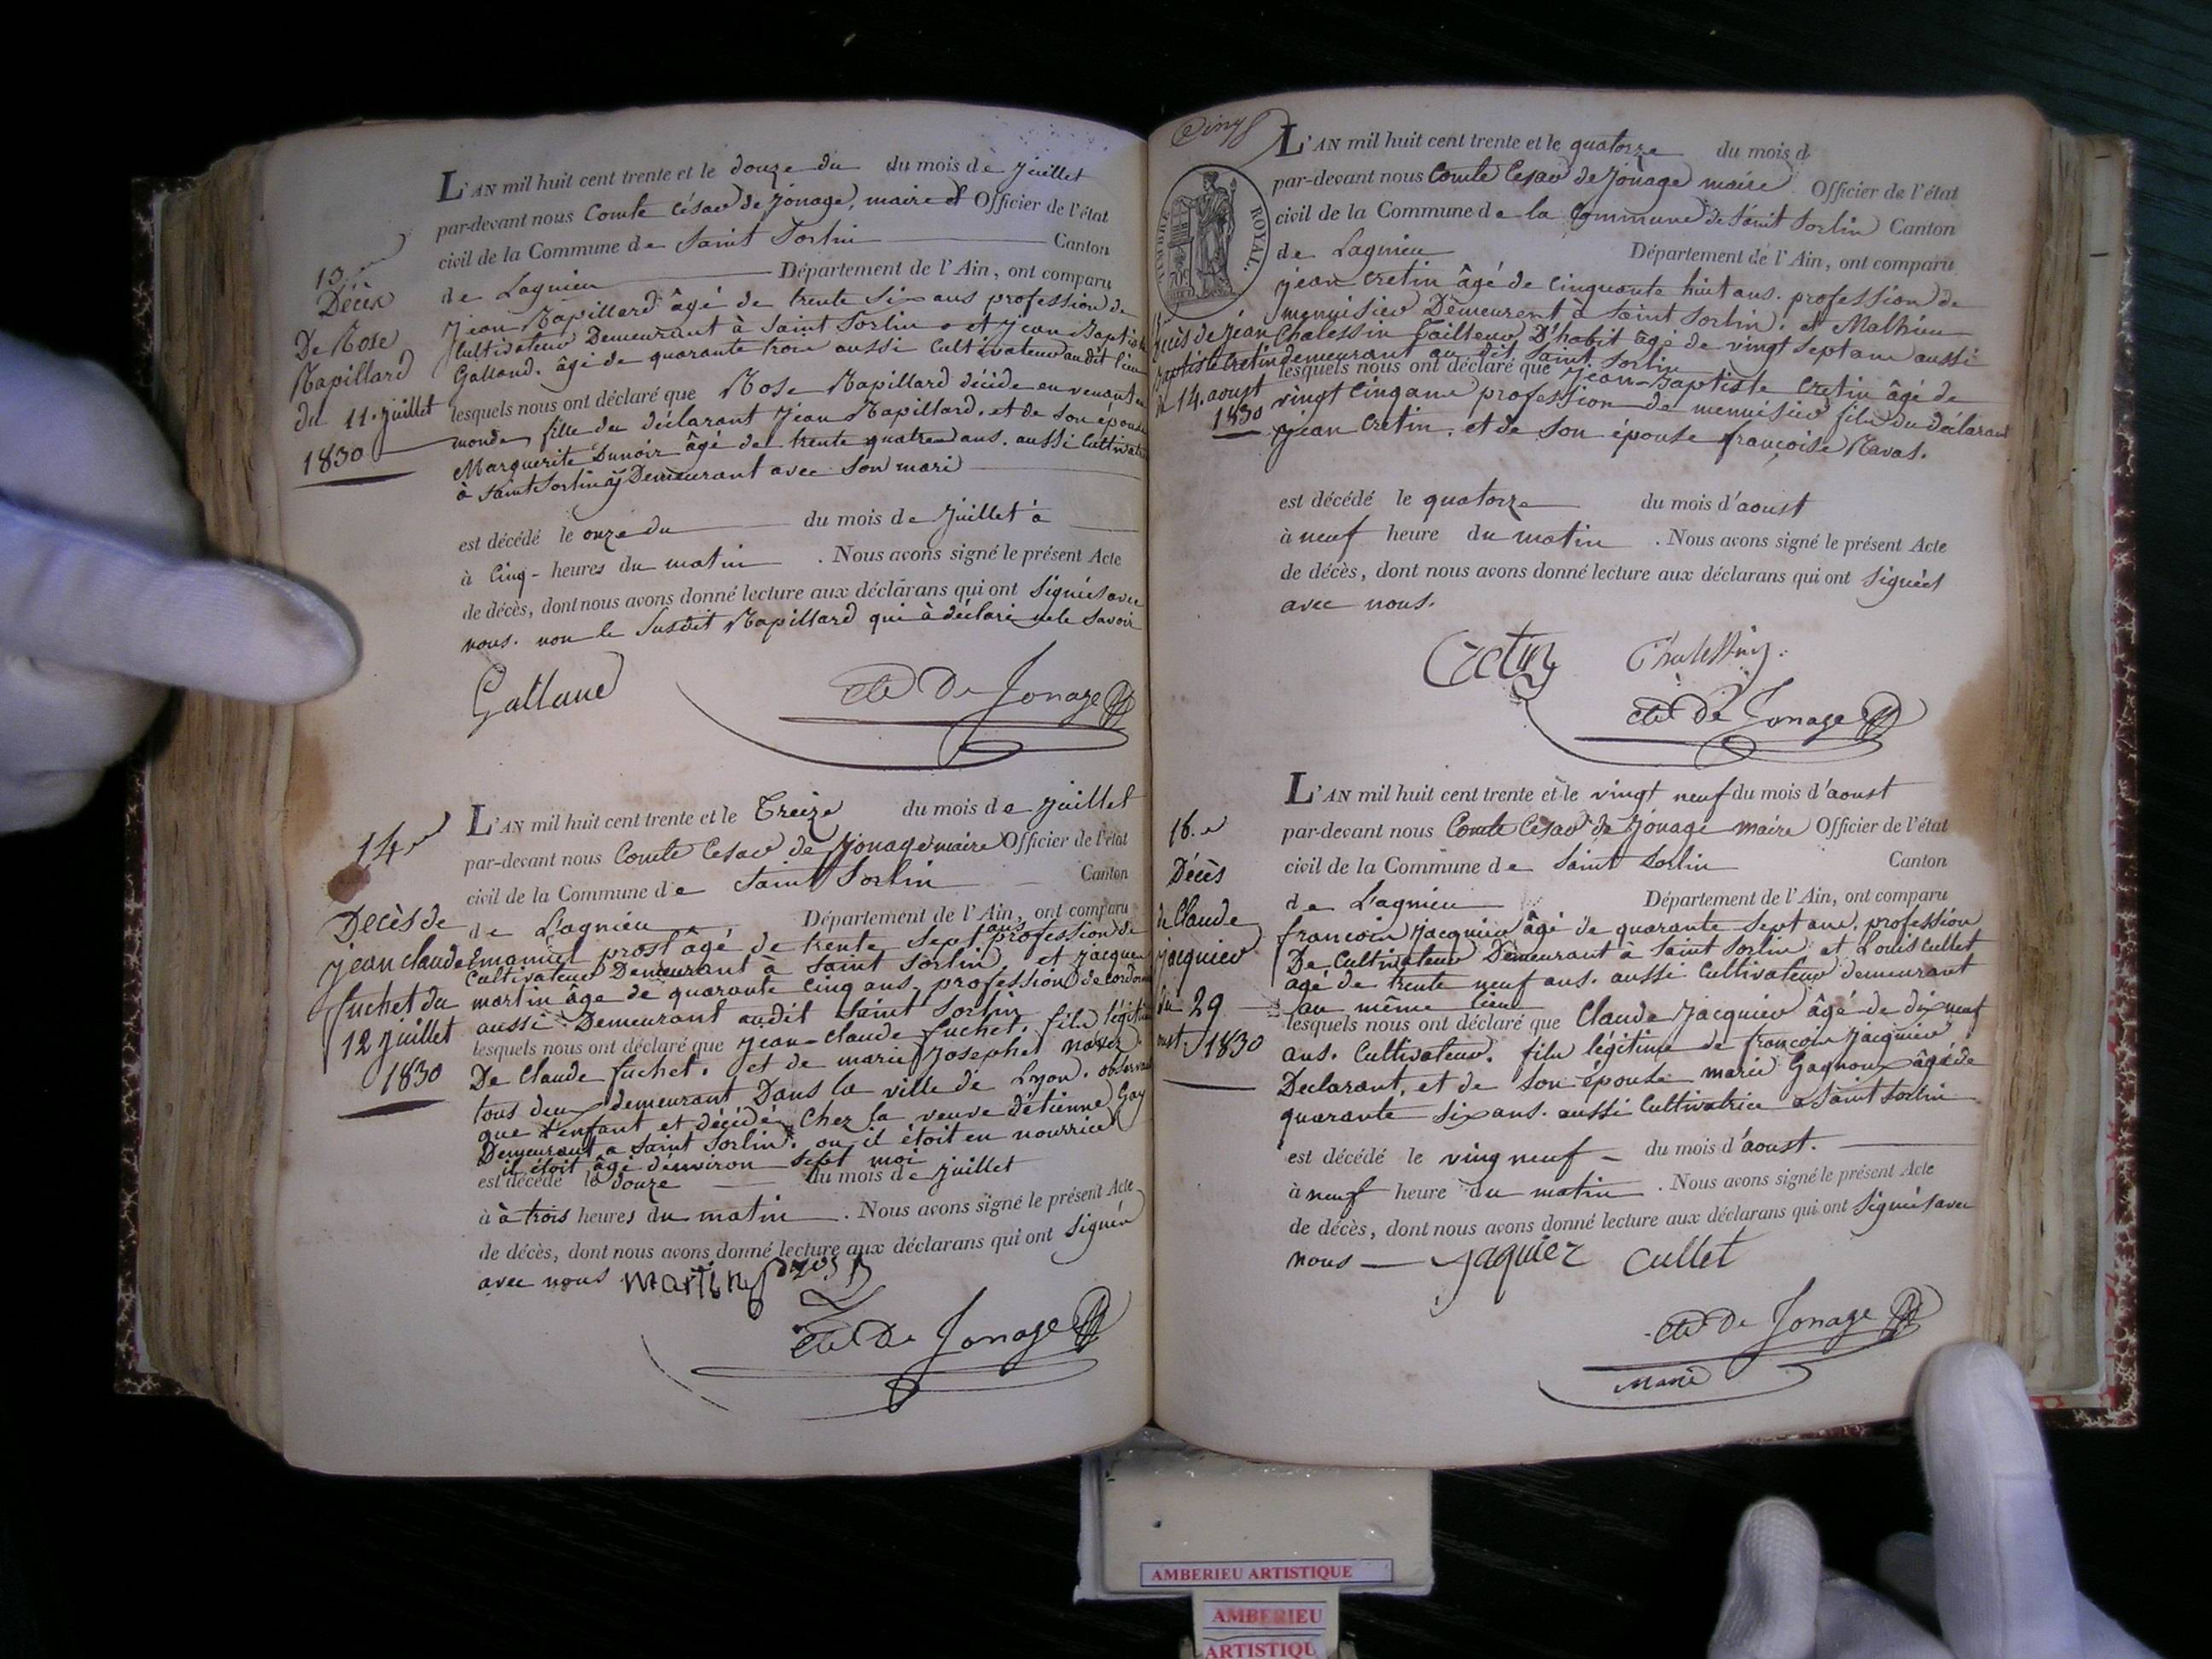 13.e
Décès
De Rose
Rapillard
du 11. juillet
1830
L'AN mil huit cent trente et le douze du du mois de juillet
par-devant nous Comte César de Jonage, maire et Officier de l'état
civil de la Commune de Saint Sorlin Canton
de Lagnieu Département de l'Ain, ont comparu
Jean Rapillard âgé de trente six ans profession de
Cultivateur Demeurant à Saint Sorlin et Jean Baptiste
Galland. âgé de quarante trois aussi Cultivateur audit lieu
lesquels nous ont déclaré que Rose Rapillard décédée en venant au
monde, fille du déclarant Jean Rapillard. et de son épouse
Marguerite Dunoir âgé de trente quatre ans. aussi Cultivatrice
à Saint Sorlin Demeurant avec son mari
est décédé le onze du du mois de juillet à
à Cinq - heures du matin . Nous avons signé le présent Acte
de décès, dont nous avons donné lecture aux déclarans qui ont signés avec
nous. non le susdit Rapillard qui à déclaré ne le savoir
Galland Cte De Jonage
14.e
Decès de
jean claude
fuchet du
12 juillet
1830
L'AN mil huit cent trente et le Treize du mois de juillet
par-devant nous Comte Cesar de Jonage maire Officier de l'état
civil de la Commune de Saint Sorlin Canton
de Lagnieu Département de l'Ain, ont comparu
Emanuel prost âgé de trente sept ans profession de
Cultivateur Demeurant à Saint Sorlin, et jacques
martin âge de quarante cinq ans, profession de cordon
aussi Demeurant audit Saint Sorlin
lesquels nous ont déclaré que jean-claude fuchet. fils légitime
De Claude fuchet. et de marie Josephe
tous deux demeurant Dans la ville de Lyon. observant
que l'enfant et décédé Chez la veuve d'étienne Gay
Demeurant a Saint Sorlin. ou il étoit en nourrice
il étoit âgé d'environ sept moi
est décédé le douze du mois de juillet
à à trois heures du matin . Nous avons signé le présent Acte
de décès, dont nous avons donné lecture aux déclarans qui ont signés
avec nous martin prost
Cte De Jonage
Cinq
TIMBRE ROYAL.
L'AN mil huit cent trente et le quatorze du mois d
par-devant nous Comte Cesar de Jonage maire Officier de l'état
civil de la Commune de la Commune de Saint Sorlin Canton
de Lagnieu Département de l'Ain, ont comparu
jean cretin âgé de cinquante huit ans. profession de
menuisier Demeurent à Saint Sorlin. et Mathieu
Chalessin Tailleur D'habit âgé de vingt sept ans aussi
demeurant au dit Saint Sorlin
lesquels nous ont déclaré que jean-Baptiste Cretin âgé de
vingt cinq ans profession de menuisier fils du déclarant
Jean Cretin. et de Son épouse françoise Ravas.
Décès de Jean
Baptiste Cretin
du 14. aoust
1830
est décédé le quatorze du mois d'aoust
à neuf heure du matin . Nous avons signé le présent Acte
de décès, dont nous avons donné lecture aux déclarans qui ont signéet
avec nous.
Cretin Chalessin
Cte De Jonage
16.e
Décès
de Claude
jacquier
du 29
oust. 1830
L'AN mil huit cent trente et le vingt neuf du mois d'aoust
par-devant nous Comte Cesar de Jonage maire Officier de l'état
civil de la Commune de Saint Sorlin Canton
de Lagnieu Département de l'Ain, ont comparu
francois jacquier âgé de quarante sept ans. profession
De Cultivateur Demeurant à Saint Sorlin et Louis Cullet
agé de trente neuf ans. aussi Cultivateur demeurant
au même lieu
lesquels nous ont déclaré que Claude Jacquier âgé de dix neuf
ans. Cultivateur. fils légitime de françois jacquier
Declarant, et de son épouse marie Gagnoux âgée de
quarante six ans. aussi Cultivatrice a Saint Sorlin
est décédé le ving neuf du mois d'aoust.
à neuf heure du matin . Nous avons signé le présent Acte
de décès, dont nous avons donné lecture aux déclarans qui ont signés avec
nous Jaquier Cullet
Cte De Jonage
Maire
AMBERIEU ARTISTIQUE
AMBERIEU
ARTISTIQU